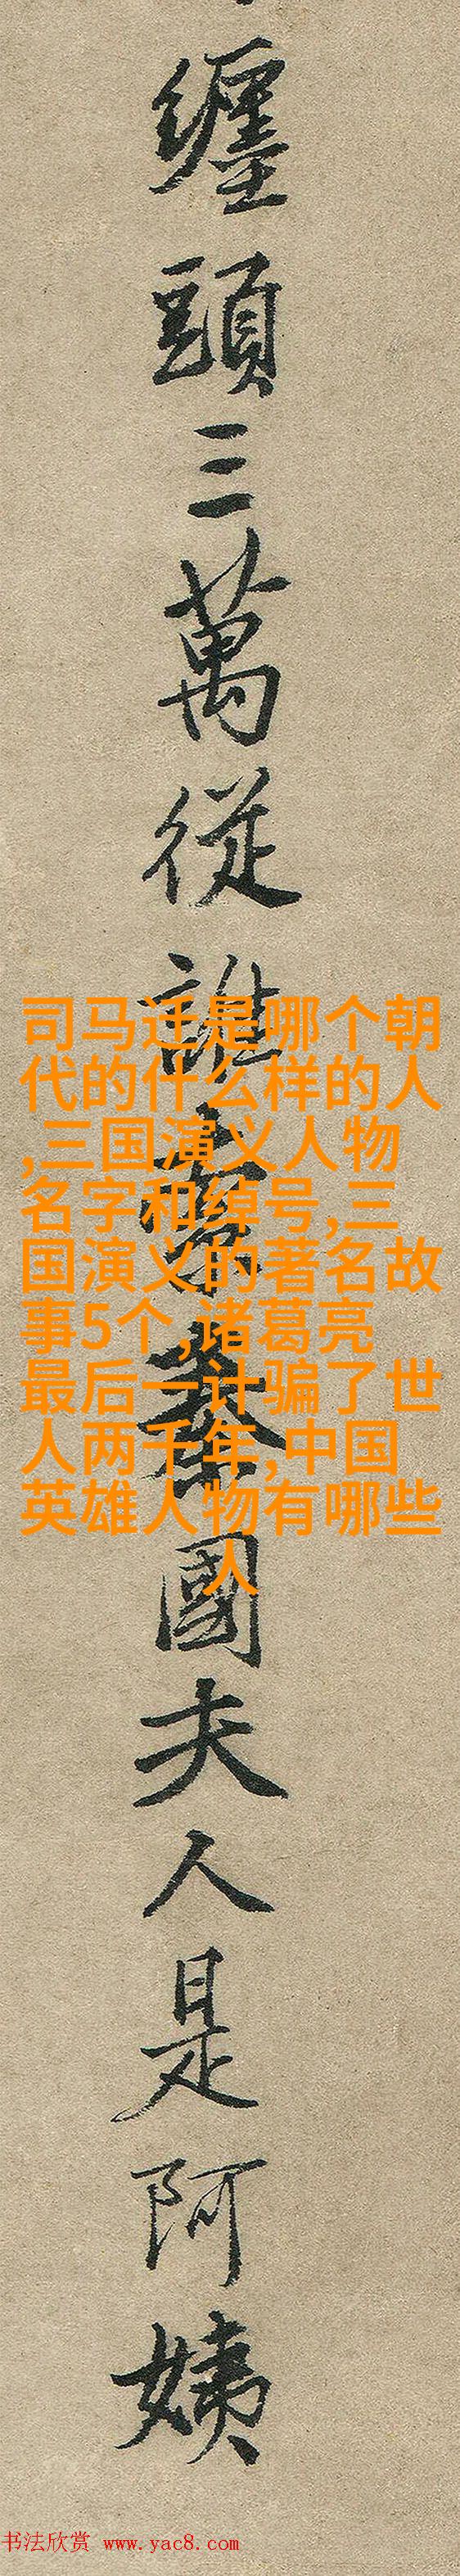 纏頭三萬從誰索秦國夫人是阿姨
司马迁是哪个朝
代的什么样的人
,三国演义人物
名字和绰号,三
国演义的著名故
事5个,诸葛亮
最后一计骗了世
人两千年,中国
英雄人物有哪些
人
书法欣赏 www.yac8.com